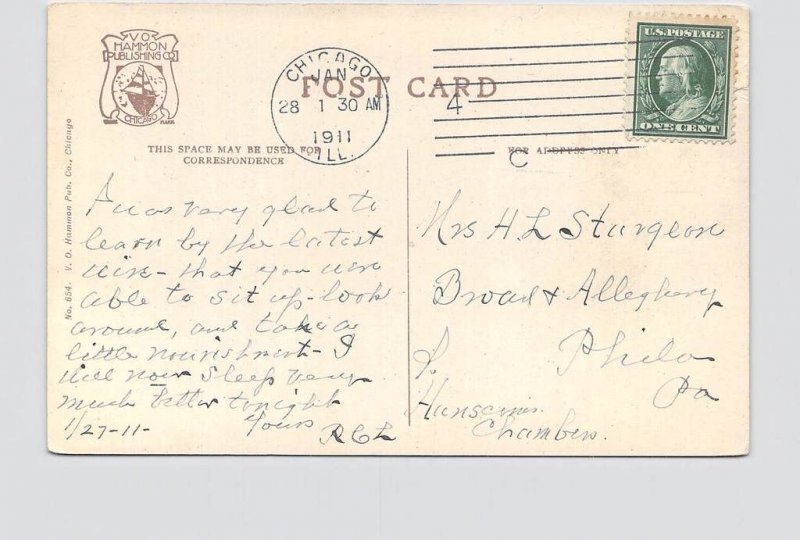 V.O.
HAMMON
PUBLISHING CO
CHICAGO
TRADE MARK
CHICAGO
JAN
28 1 30 AM
1911
ILL.
POST CARD
4
C
U.S. POSTAGE
ONE CENT
THIS SPACE MAY BE USED FOR
CORRESPONDENCE
FOR ADDRESS ONLY
No. 654. V. O. Hammon Pub. Co., Chicago
was very glad to
learn by the latest
wire - that you were
able to sit up - look
around, and take a
little nourishment - I
will now sleep very
much better tonight
1/27-11- Yours
Mrs H L Sturgeon
Broad & Allegheny
Phila
Pa
Chambers.